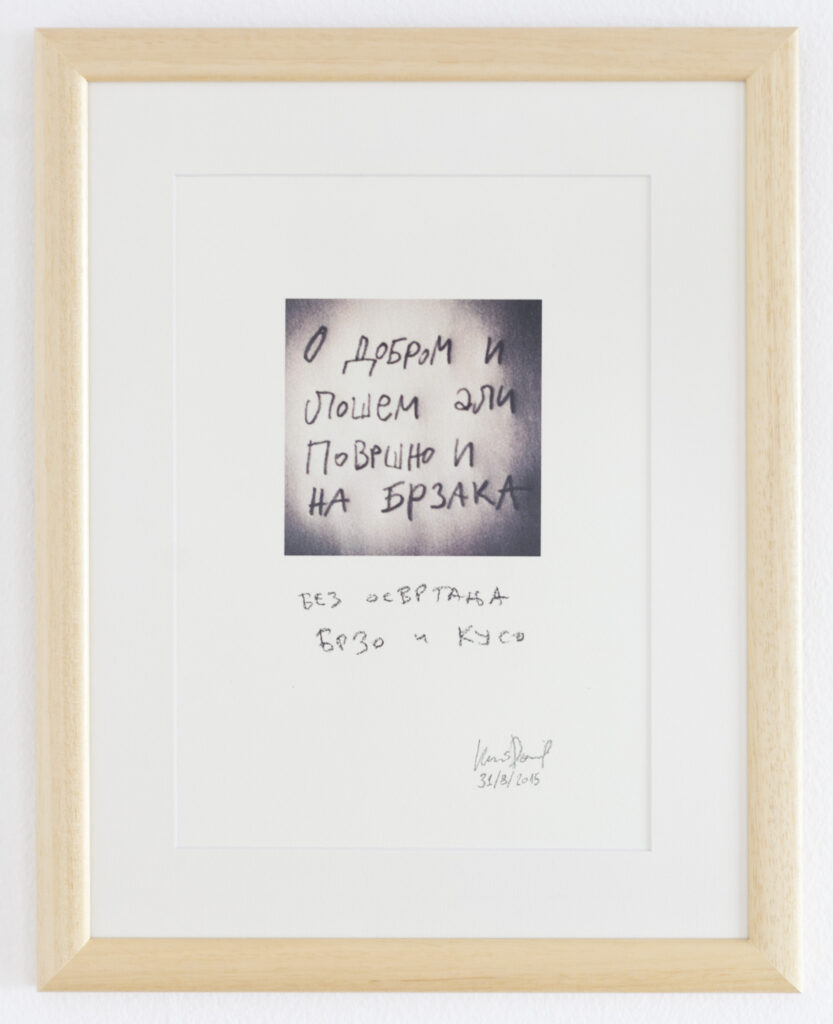 О ДОБРОМ И
ЛОШЕМ АЛИ
ПОВРШНО И
НА БРЗАКА
БЕЗ ОСВРТАЊА
БРЗО И КУСО
31/8/2015